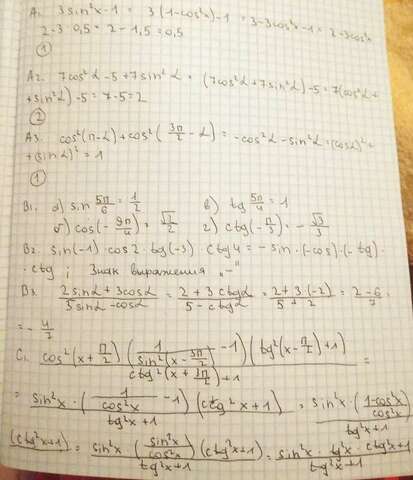 A1. 3sin²x-1 = 3(1-cos²x)-1 = 3-3cos²x-1 = 2-3cos²x
2-3·0,5 = 2-1,5 = 0,5
①
A2. 7cos²α-5+7sin²α = (7cos²α+7sin²α)-5 = 7(cos²α+
+sin²α)-5 = 7-5 = 2
②
A3. cos²(π-α)+cos²(3π/2-α) = -cos²α-sin²α = (cosα)²+
+(sinα)² = 1
①
B1. а) sin 5π/6 = 1/2 в) tg 5π/4 = 1
б) cos(-9π/4) = √2/2 г) ctg(-π/3) = -√3/3
B2. sin(-1)·cos2·tg(-3)·ctg4 = -sin·(-cos)·(-tg)·
·ctg; Знак выражения „-"
B3. 2sinα+3cosα/5sinα-cosα = 2+3ctgα/5-ctgα = 2+3·(-2)/5+2 = 2-6/7 =
= -4/7
C1. cos²(x+π/2)(1/sin²(x-3π/2) -1)(tg²(x-π/2)+1)/ctg²(x+3π/2)+1 =
= sin²x·(1/cos²x -1)(ctg²x+1)/tg²x+1 = sin²x·(1-cos²x/cos²x)/tg²x+1
(ctg²x+1) = sin²x·(sin²x/cos²x)(ctg²x+1)/tg²x+1 = sin²x·tg²x·ctg²x+1/tg²x+1